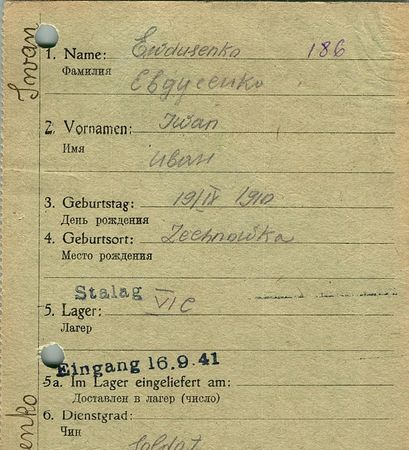 Iwan
1. Name: Ewdusenko 186
Фамилия Евдусенко
2. Vornamen: Iwan
Имя Иван
3. Geburtstag: 19/IV 1910
День рождения
4. Geburtsort: Zechnowka
Место рождения
Stalag
5. Lager: VIC
Лагер
Eingang 16.9.41
5a. Im Lager eingeliefert am:
Доставлен в лагер (число)
6. Dienstgrad:
Чин
Soldat
enko